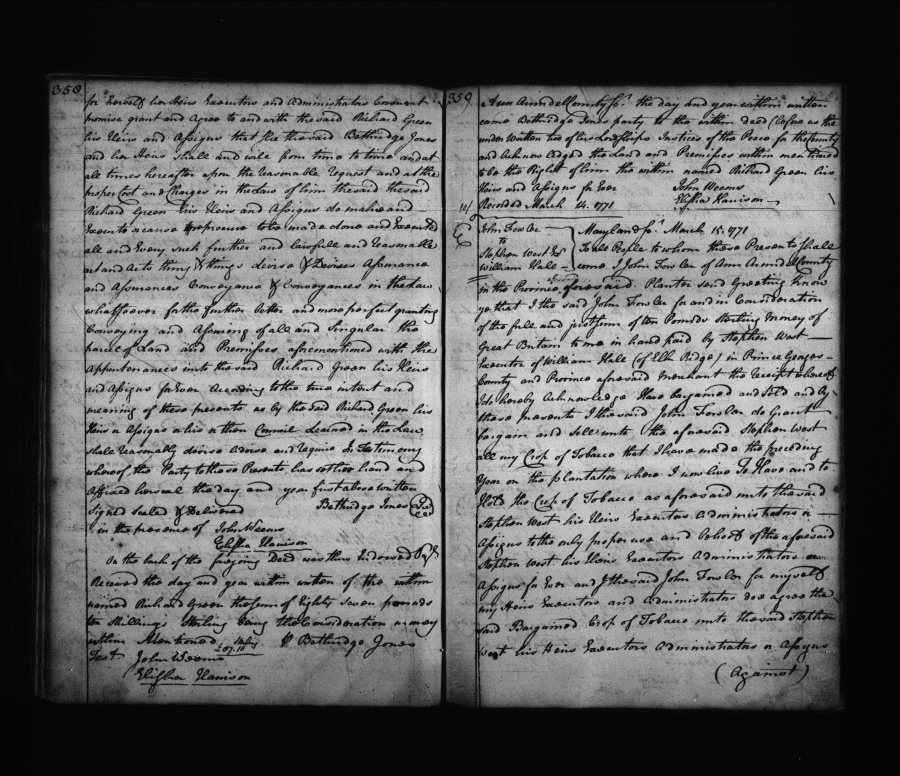 358
for herself her Heirs Executors and Administrators Covenant
promise grant and Agree to and with the said Richard Green
his Heirs and Assigns that she the said Bethridge Jones
and her Heirs shall and will from time to time and at
all times hereafter upon the reasonable request and at the
proper Cost and Charges in the Law of him the said the said
Richard Green his Heirs and Assigns do make and
Execute or cause to be made done and Executed
all and Every such further and lawfull and reasonable
act and acts thing & things devise & Devises Assurance
and Assurances Conveyance & Conveyances in the Law
whatsoever for the further better and more perfect granting
Conveying and Assuring of all and Singular the
parcel of Land and Premisses aforementioned with the
Appurtenances unto the said Richard Green his Heirs
and Assigns for Ever According to the true intent and
meaning of these presents as by the said Richard Green his
Heirs or Assigns or his or their Council Learned in the Law
shall reasonably devise advise and require In Testimony
whereof the Party to these Presents has set her hand and
Affixed her seal the day and year first above written
Signed Seald & Delivered Bethridge Jones (Seal)
in the presence of John Weems
Elisha Harrison
On the back of the foregoing Deed was thus Endorsed
Received the day and year within written of the within
named Richard Green the sum of Eighty Seven pounds
ten Shillings Sterling being the Consideration money
within Mentioned Bethridge Jones
Test John Weems
Elisha Harrison
359
Ann Arundel County Ss. the day and year within written
came Bethridge Jones party to the within deed before us the
under written two of his Lordships Justices of the Peace for the County
and Acknowledged the Land and Premisses within mentioned
to be the Right of him the within named Richard Green his
Heirs and Assigns for Ever John Weems
Elisha Harrison
Recorded March 14. 1771
John Fowler Maryland Ss. March 15. 1771
to To all People to whom these Presents shall
Stephen West Exr come I John Fowler of Ann Arundel County
William Hall
in the Province aforesaid Planter send Greeting know
ye that I the said John Fowler for and in Consideration
of the full and just sum of ten Pounds Sterling money of
Great Britain to me in hand paid by Stephen West
Executor of William Hall (of Elk Ridge) in Prince Georges
County and Province aforesaid Merchant the Receipt whereof
I do hereby Acknowledge Have bargained and Sold and by
these presents I the said John Fowler do Grant
bargain and Sell unto the aforesaid Stephen West
all my Crop of Tobacco that I have made the preceding
Year on the plantation where I now live To Have and to
Hold the Crop of Tobacco as aforesaid unto the said
Stephen West his Heirs Executors Administrators or
Assigns to the only proper use and behoof of the aforesaid
Stephen West his Heirs Executors Administrators or
Assigns for Ever and I the said John Fowler for myself
my Heirs Executors and administrators doe agree the
said Bargained Crop of Tobacco unto the said Stephen
West his Heirs Executors Administrators or Assigns
(Against)